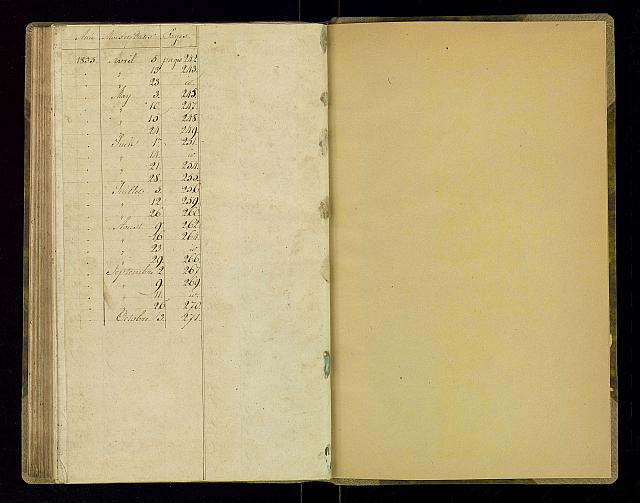 Année Mois et Dates Pages
1833. Avril 5 pages 242
" " 13 243.
" " 23 id.
" May 3. 245.
" " 10 247.
" " 15 248
" " 24 249.
" Juin 7. 251.
" " 14. id.
" " 21 254.
" " 28 255.
" Juillet 5. 256.
" " 12 259.
" " 26 260.
" Aoust 9. 262
" " 16 264.
" " 23 id.
" " 29 266.
" Septembre 2 267.
" " 9 269
" " 11 id.
" " 26 270.
" Octobre 3. 271.